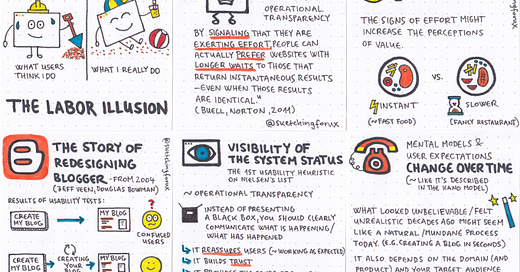 WHAT USERS
THINK I DO
WHAT I REALLY DO
THE LABOR ILLUSION
OPERATIONAL
TRANSPARENCY
BY SIGNALING THAT THEY ARE
EXERTING EFFORT, PEOPLE CAN
ACTUALLY PREFER WEBSITES WITH
LONGER WAITS TO THOSE THAT
RETURN INSTANTANEOUS RESULTS
—EVEN WHEN THOSE RESULTS
ARE IDENTICAL."
(BUELL, NORTON, 2011)
@sketchingforux
THE SIGNS OF EFFORT MIGHT
INCREASE THE PERCEPTIONS
OF VALUE.
VS.
INSTANT
(~FAST FOOD)
SLOWER
(FANCY RESTAURANT)
THE STORY OF
REDESIGNING
BLOGGER - FROM 2004
(JEFF VEEN, DOUGLAS BOWMAN)
@sketchingforux
RESULTS OF USABILITY TESTS:
CREATE
MY BLOG
MY BLOG
CONFUSED
USERS
CREATE
MY BLOG
CREATING
YOUR
BLOG
MY BLOG
VISIBILITY OF
THE SYSTEM STATUS
THE 1ST USABILITY HEURISTIC
ON NIELSEN'S LIST
~ OPERATIONAL TRANSPARENCY
INSTEAD OF PRESENTING
A BLACK BOX, YOU SHOULD CLEARLY
COMMUNICATE WHAT IS HAPPENING/
WHAT HAS HAPPENED
IT REASSURES USERS (~ WORKING AS EXPECTED)
IT BUILDS TRUST
MENTAL MODELS &
USER EXPECTATIONS
CHANGE OVER TIME
(~ LIKE IT'S DESCRIBED
IN THE KANO MODEL)
WHAT LOOKED UNBELIEVABLE / FELT
UNREALISTIC DECADES AGO MIGHT SEEM
LIKE A NATURAL / MUNDANE PROCESS
TODAY. (E.G. CREATING A BLOG IN SECONDS)
IT ALSO DEPENDS ON THE DOMAIN (AND
PRODUCT) AND YOUR TARGET AUDIENCE